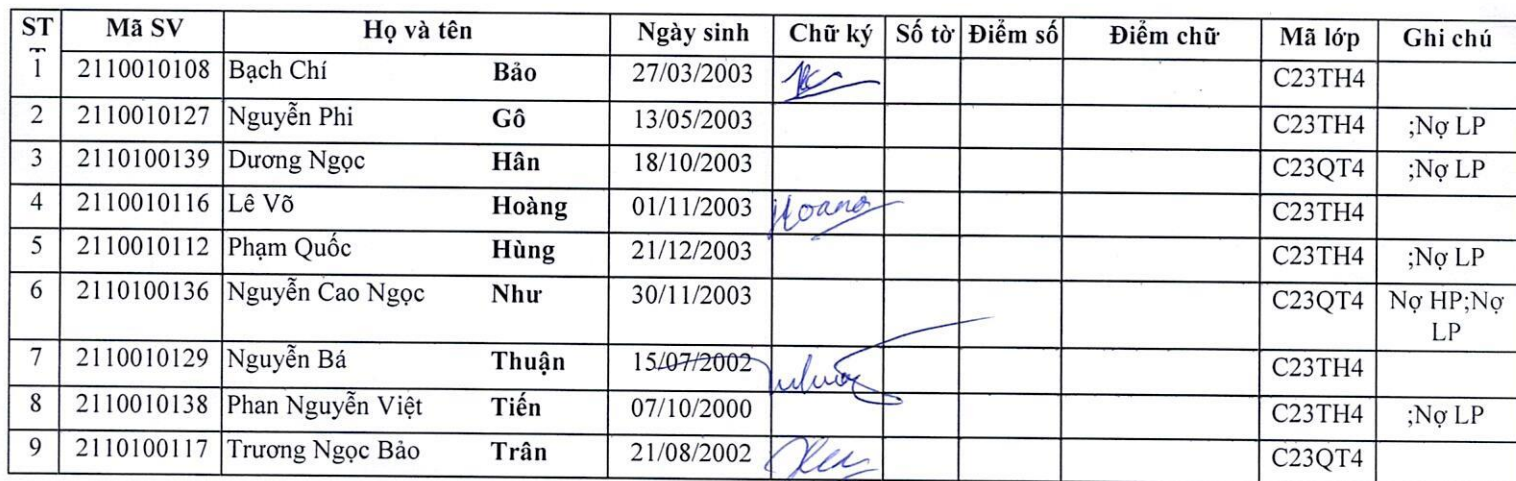 STT Mã SV Họ và tên Ngày sinh Chữ ký Số tờ Điểm số Điểm chữ Mã lớp Ghi chú
1 2110010108 Bạch Chí Bảo 27/03/2003 C23TH4
2 2110010127 Nguyễn Phi Gô 13/05/2003 C23TH4 ;Nợ LP
3 2110100139 Dương Ngọc Hân 18/10/2003 C23QT4 ;Nợ LP
4 2110010116 Lê Võ Hoàng 01/11/2003 Hoang C23TH4
5 2110010112 Phạm Quốc Hùng 21/12/2003 C23TH4 ;Nợ LP
6 2110100136 Nguyễn Cao Ngọc Như 30/11/2003 C23QT4 Nợ HP;Nợ
LP
7 2110010129 Nguyễn Bá Thuận 15/07/2002 C23TH4
8 2110010138 Phan Nguyễn Việt Tiến 07/10/2000 C23TH4 ;Nợ LP
9 2110100117 Trương Ngọc Bảo Trân 21/08/2002 C23QT4